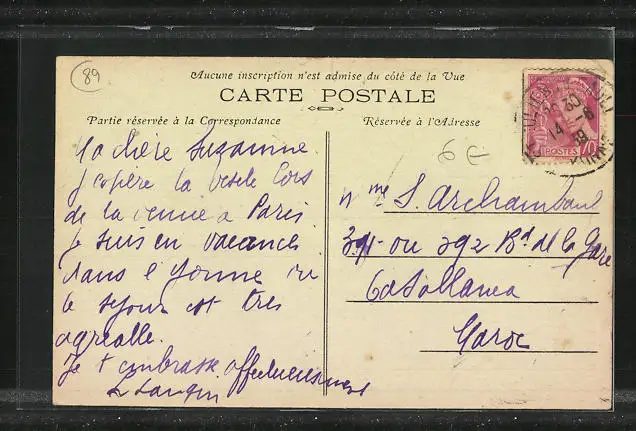 89
Aucune inscription n'est admise du côté de la Vue
CARTE POSTALE
Partie réservée à la Correspondance
Réservée à l'Adresse
6 €
POSTES
70
Ma chère Suzanne
J espère la
de la venue a Paris
Je suis en vacances
dans l'Yonne ou
le sejour est tres
agreable.
Je t embrasse affectueusement
Mme S. Archambaud
391 ou 392 Bd de la Gare
Casablanca
Maroc